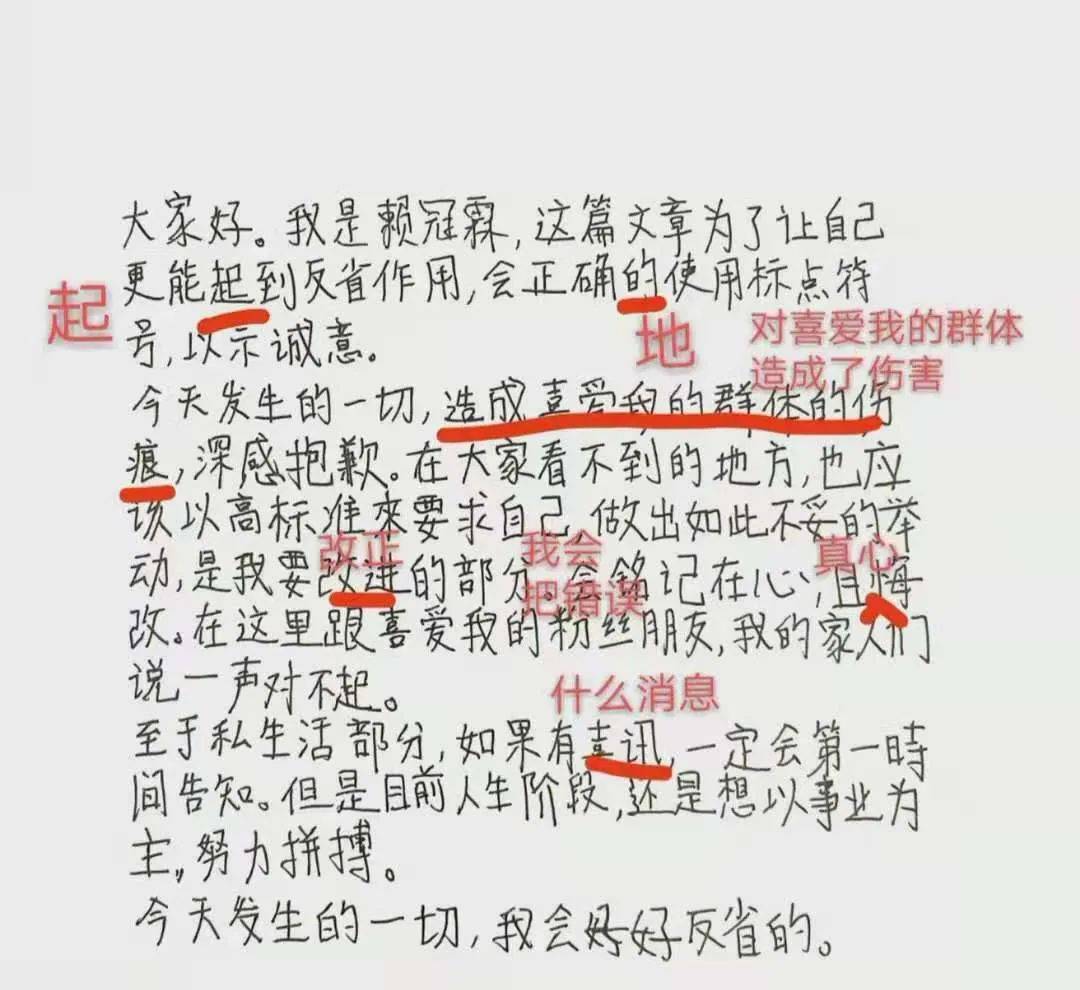 大家好。我是赖冠霖，这篇文章为了让自己
更能起到反省作用，会正确的使用标点符
起
地
对喜爱我的群体
造成了伤害
号，以示诚意。
今天发生的一切，造成喜爱我的群体的伤
痕，深感抱歉。在大家看不到的地方，也应
该以高标准来要求自己，做出如此不妥的举
改正
我会
把错误
真心
动，是我要改进的部分。会铭记在心，且悔
改。在这里跟喜爱我的粉丝朋友，我的家人们
说一声对不起。
什么消息
至于私生活部分，如果有喜讯，一定会第一時
间告知。但是目前人生阶段，还是想以事业为
主，努力拼搏。
今天发生的一切，我会好好反省的。